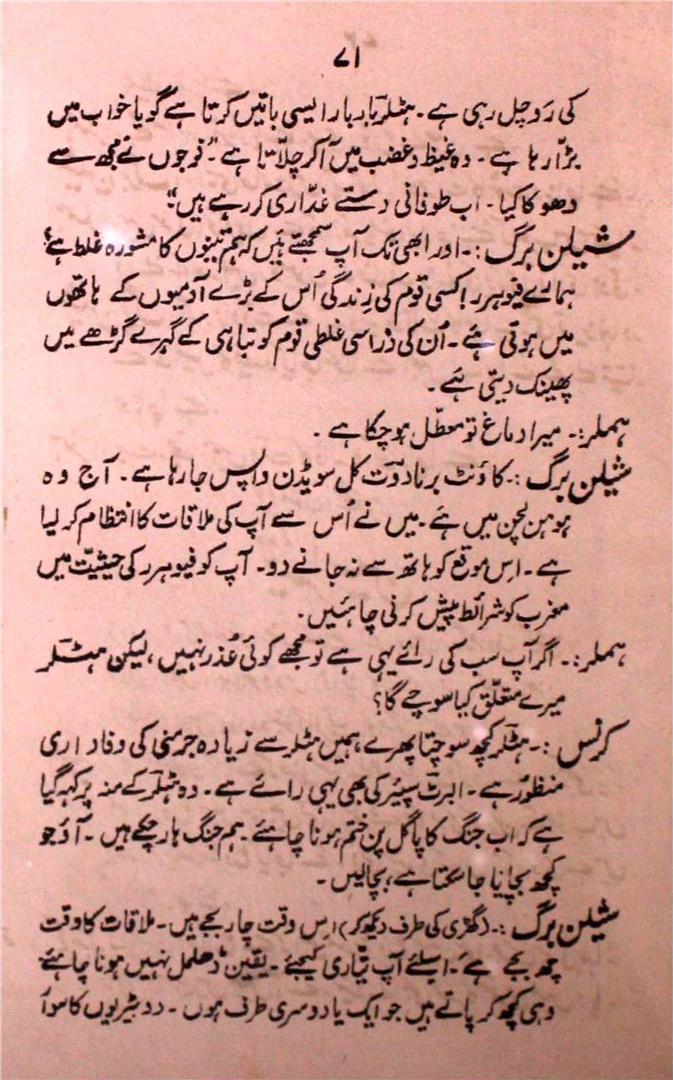 ۷۱
کی رَو چل رہی ہے۔ ہٹلر بار بار ایسی باتیں کرتا ہے گویا خواب میں
بڑّا رہا ہے۔ وہ غیظ و غضب میں آکر چلاّتا ہے۔ "فوجوں نے مجھ سے
دھوکا کیا۔ اب طوفانی دستے غدّاری کر رہے ہیں"
شیلن برگ :۔ اور ابھی تک آپ سمجھتے ہیں کہ ہم تینوں کا مشورہ غلط ہے؟
ہمارے فیوہرر! کسی قوم کی زِندگی اُس کے بڑے آدمیوں کے ہاتھوں
میں ہوتی ہے۔ اُن کی ذرا سی غلطی قوم کو تباہی کے گہرے گڑھے میں
پھینک دیتی ہے۔
ہملر:۔ میرا دماغ تو معطّل ہو چکا ہے۔
شیلن برگ :۔ کاؤنٹ برنادوت کل سویڈن واپس جا رہا ہے۔ آج وہ
ہوہن لچن میں ہے۔ میں نے اُس سے آپ کی ملاقات کا انتظام کر لیا
ہے۔ اِس موقع کو ہاتھ سے نہ جانے دو۔ آپ کو فیوہرر کی حیثیّت میں
مغرب کو شرائط پیش کرنی چاہئیں۔
ہملر:۔ اگر آپ سب کی رائے یہی ہے تو مجھے کوئی عُذر نہیں، لیکن ہٹلر
میرے متعلّق کیا سوچے گا؟
کرنس :۔ ہٹلر کچھ سوچتا پھرے ہمیں ہٹلر سے زیادہ جرمنی کی وفاداری
منظور ہے۔ البرٹ سپیَر کی بھی یہی رائے ہے۔ وہ ہٹلر کے منہ پر کہہ گیا
ہے کہ اب جنگ کا پاگل پن ختم ہونا چاہئے۔ ہم جنگ ہار چکے ہیں۔ آؤ جو
کچھ بچایا جا سکتا ہے، بچا لیں۔
شیلن برگ :۔ (گھڑی کی طرف دیکھ کر) اِس وقت چار بجے ہیں۔ ملاقات کا وقت
چھ بجے ہے۔ اسلئے آپ تیّاری کیجئے۔ یقین ڈھلمل نہیں ہونا چاہئے
وہی کچھ کر پاتے ہیں جو ایک یا دوسری طرف ہوں۔ دو بیڑیوں کا سوا